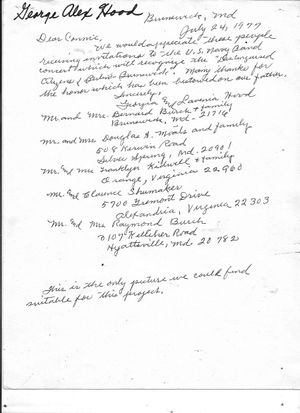 George Alex Hood
Brunswick, Md
July 24, 1977
Dear Connie,
We would appreciate these people
receiving invitations to the U.S. Navy Band
concert which will recognize the "Distinguished
Citizens of Brunswick". Many thanks for
the honor which has been bestowed on our father.
Sincerely,
Georgia and Lavenia Hood
Mr. and Mrs. Bernard Burch & family
Brunswick, Md - 21716
Mr. and Mrs. Douglas H. and family
808 Kerwin Road
Silver Spring, Md. 20901
Mr. and Mrs. Franklyn & family
Orange, Virginia 22960
Mr. and Clarence Shumaker
5700 Tremont Drive
Alexandria, Virginia 22303
Mr. and Mrs Raymond Burch
Road
Hyattsville, Md 20782
This is the only picture we could find
suitable for this project.